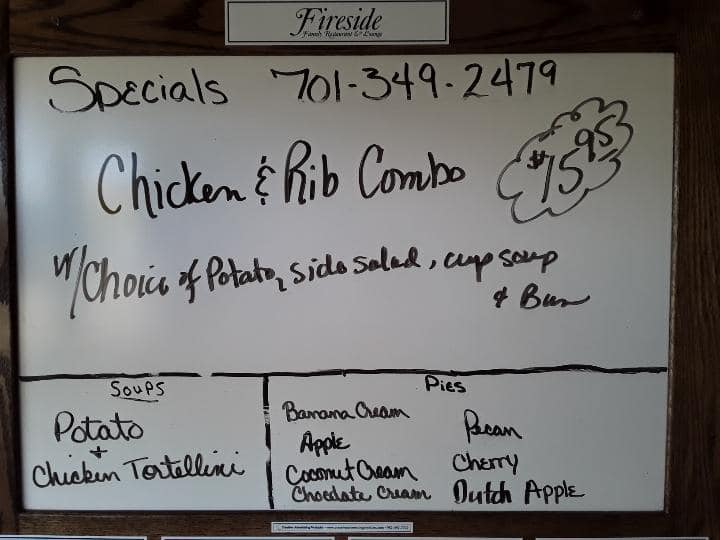 Fireside
Family Restaurant & Lounge
Specials 701-349-2479
Chicken & Rib Combo $15.95
w/Choice of Potato, side salad, cup soup
& Bun
Soups
Potato
+
Chicken Tortellini
Pies
Banana Cream
Apple
Coconut Cream
Chocolate Cream
Pecan
Cherry
Dutch Apple